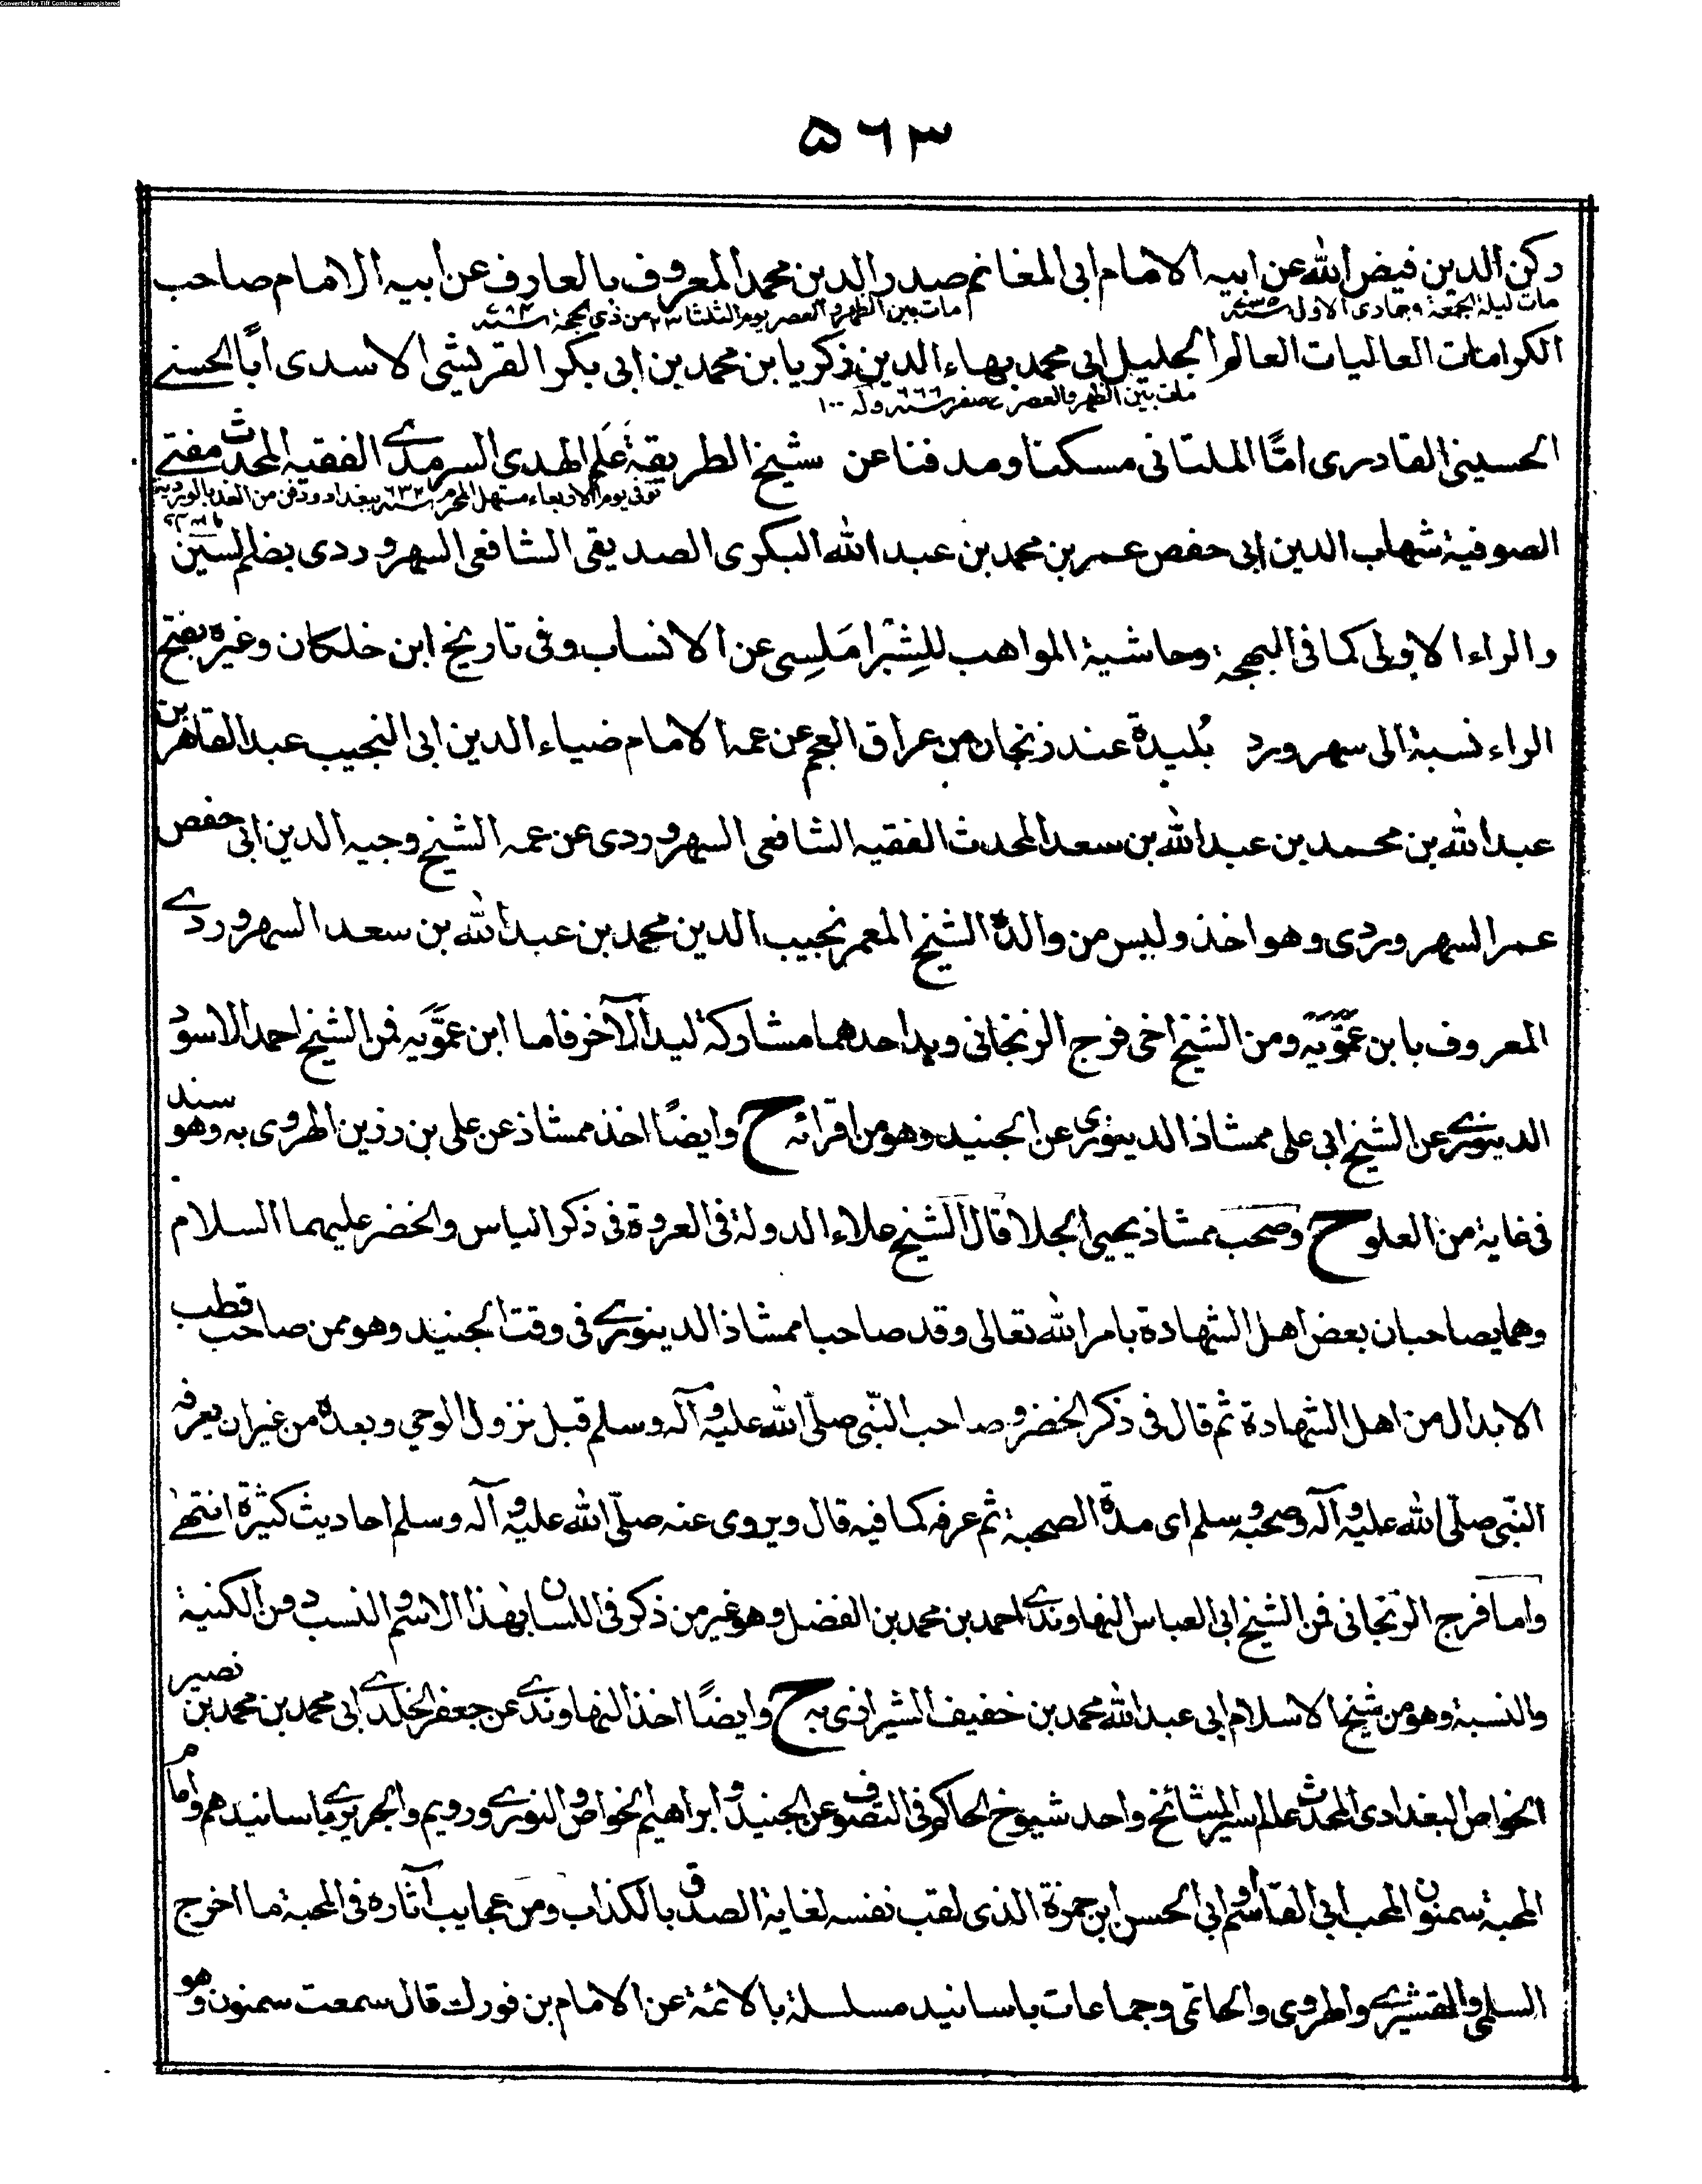 Converted by Tiff Combine - unregistered
۵۶۳
ركن الدين فيض الله عن ابيه الامام ابى المغانم صدر الدين محمد المعروف بالعارف عن ابيه الامام صاحب
مات ليلة الجمعة وجمادى الاولى
مات بين الظهر والعصر يوم الثلثاء ٢٣ من ذي الحجة
الكرامات العاليات العالم الجليل ابى محمد بهاء الدين زكريا بن محمد بن ابى بكر القريشى الاسدى ابًا الحسنے
مات بين الظهر والعصر ٧ صفر سنة ٦٦٦ وله ١٠٠
الحسينى القادرى امًّا الملتانى مسكنا ومدفنا عن شيخ الطريقة عَلَم الهدى السرمدے الفقيه المحدث مفتے
توفى يوم الاربعاء مستهل المحرم سنة ٦٣٢ ببغداد ودفن من الغد بالوردية
الصوفية شهاب الدين ابى حفص عمر بن محمد بن عبد الله البكرى الصديقى الشافعى السهروردى بضم السين
والراء الاولى كما فى البهجة وحاشية المواهب للشِبْرامَلِسى عن الانساب وفى تاريخ ابن خلكان وغيره بفتح
الراء نسبة الى سهرورد بُليدة عند زنجان من عراق العجم عن عمه الامام ضياء الدين ابى النجيب عبد القاهر بن
عبد الله بن محمد بن عبد الله بن سعد المحدث الفقيه الشافعى السهروردى عن عمه الشيخ وجيه الدين ابى حفص
عمر السهروردى وهو اخذ ولبس من والده الشيخ المعمر نجيب الدين محمد بن عبد الله بن سعد السهروردے
المعروف بابن عمّويه ومن الشيخ اخى فرج الزنجانى ويد احدهما مشاركة ليد الآخر فاما ابن عمّويه فمن الشيخ احمد الاسود
الدينورے عن الشيخ ابى على ممشاذ الدينورى عن الجنيد وهو من اقرانه ح وايضًا اخذ ممشاذ عن على بن رزين الهروى به وهو سند
فى غاية من العلو ح وصحب ممشاذ يحيى الجلا قال الشيخ علاء الدولة فى العروة فى ذكر الياس والخضر عليهما السلام
وهما يصاحبان بعض اهل الشهادة بامر الله تعالى وقد صاحبا ممشاذ الدينورے فى وقت الجنيد وهو ممن صاحب قطب
الابدال من اهل الشهادة ثم قال فى ذكر الخضر وصاحب النّبى صلّى الله عليه وآله وسلم قبل نزول الوحي وبعده من غير ان يعرفه
النّبى صلّى الله عليه وآله وصحبه وسلم اى مدة الصحبة ثم عرفه كما فيه قال ويروى عنه صلّى الله عليه وآله وسلم احاديث كثيرة انتهى
واما فرج الزنجانى فمن الشيخ ابى العباس النهاوندے احمد بن محمد بن الفضل وهو غير من ذكر فى اللسان بهذا الاسم والنسب دون الكنية
والنسبة وهو من شيخ الاسلام ابى عبد الله محمد بن خفيف الشيرازى به ح وايضًا اخذ النهاوندے عن جعفر الخلدے ابى محمد بن محمد بن نصير
الخواص البغدادى المحدث عالم سير المشائخ واحد شيوخ الحاكم فى التصوف عن الجنيد وابراهيم الخواص والنورے ورويم والجريرے باسانيدهم وامام
المحبة سمنون المحب ابى القاسم او ابى الحسن ابن حمزة الذى لقب نفسه لغاية الصدق بالكذاب ومن عجايب آثاره فى المحبة ما اخرج
السلمى والقشيرے والهروى والحاتمى وجماعات باسانيد مسلسلة بالائمة عن الامام بن فورك قال سمعت سمنون وهو